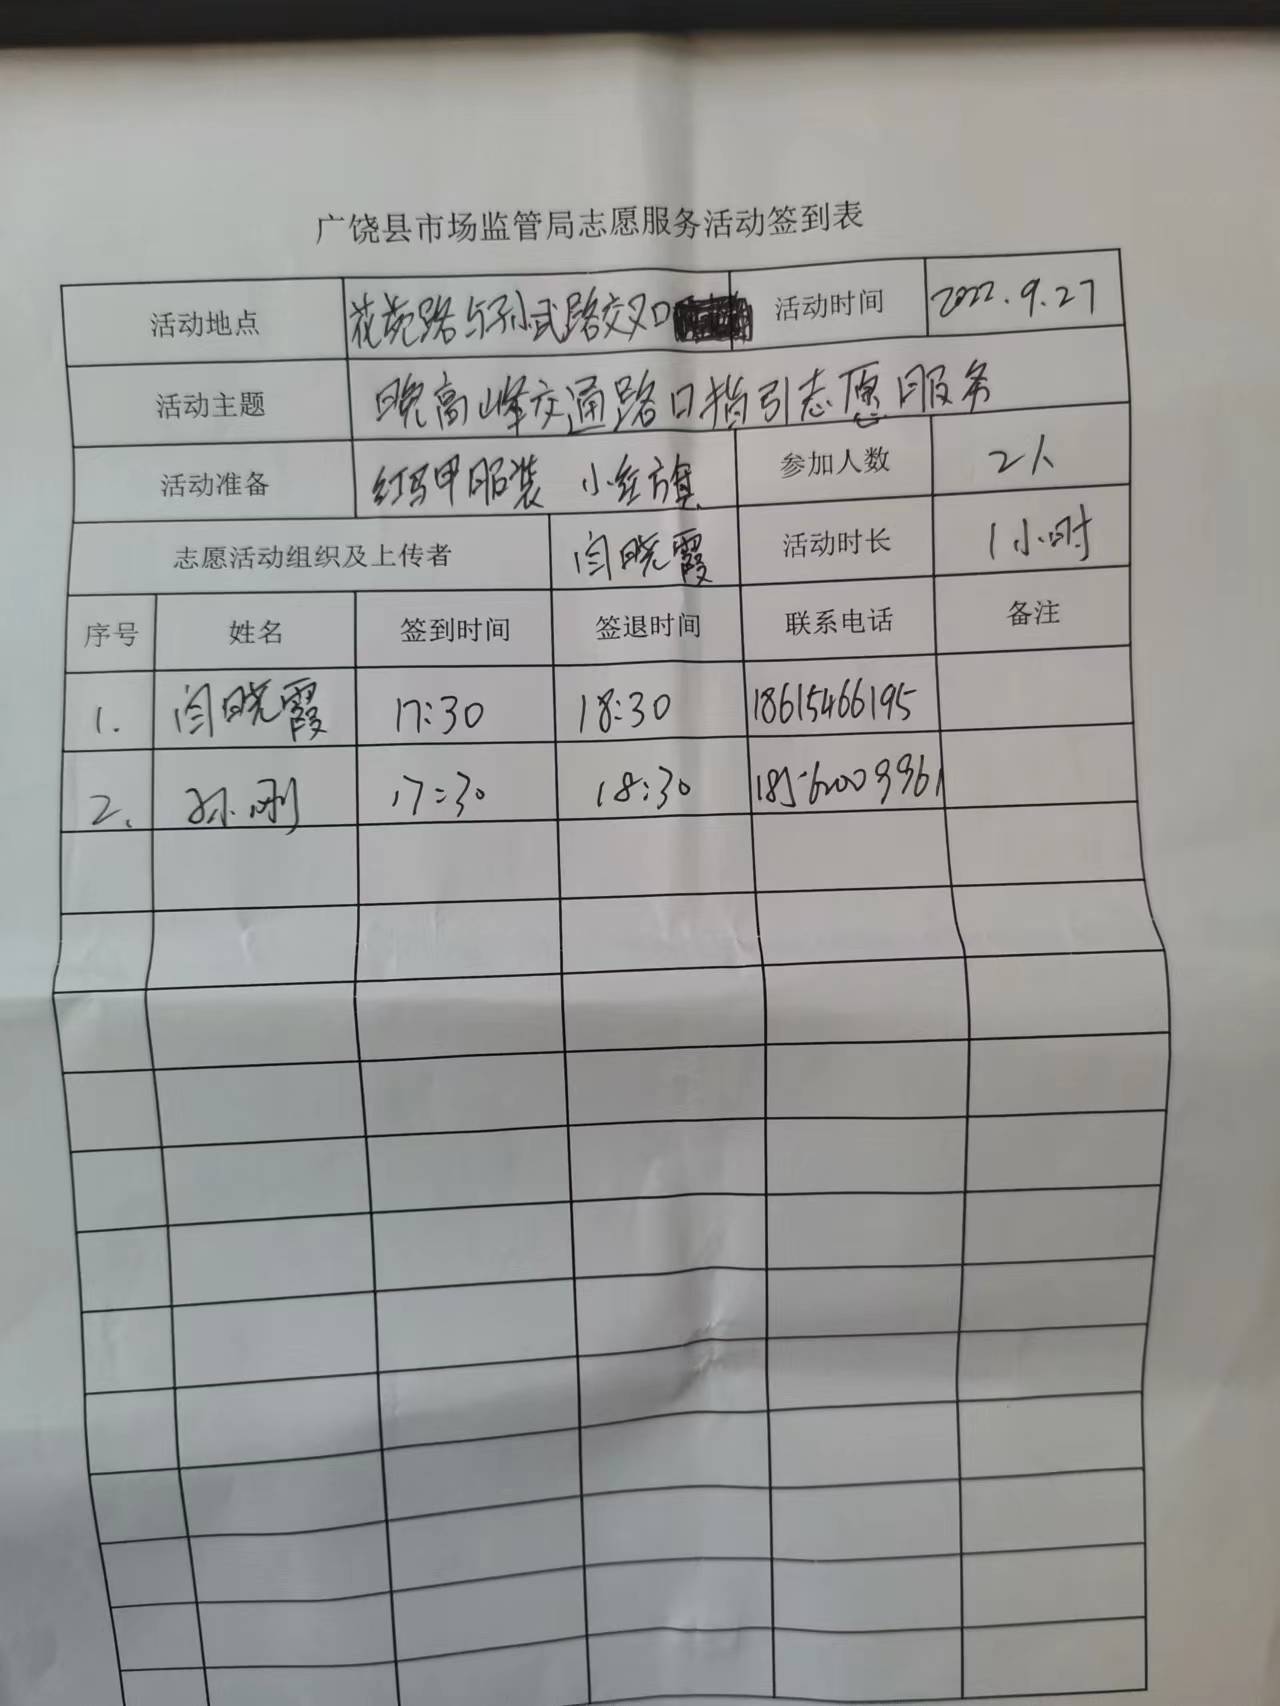 广饶县市场监管局志愿服务活动签到表
活动地点 花苑路与孙武路交叉口 活动时间 2022.9.27
活动主题 晚高峰交通路口指引志愿服务
活动准备 红马甲服装 小红旗 参加人数 2人
志愿活动组织及上传者 闫晓霞 活动时长 1小时
序号 姓名 签到时间 签退时间 联系电话 备注
1. 闫晓霞 17:30 18:30 18615466195
2. 孙刚 17:30 18:30 18562009961